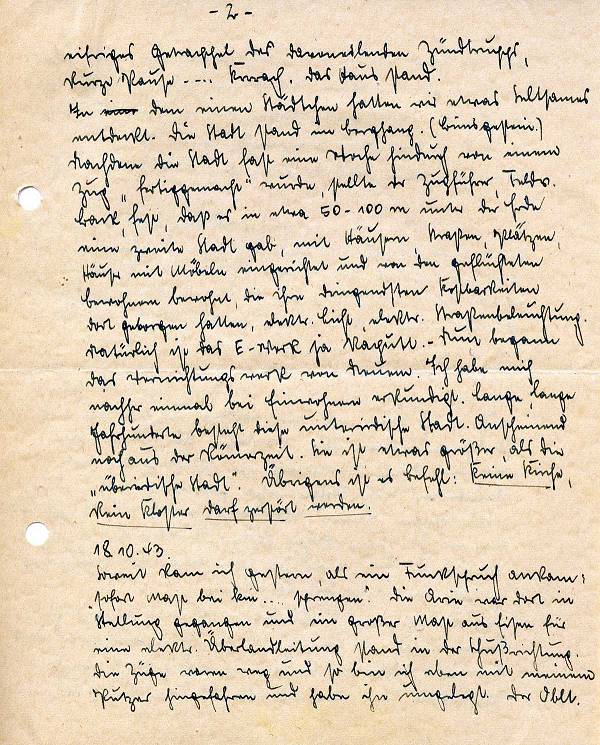 - 2 -
eifriges Getrappel des davoneilenden Zündtrupps,
kurze Pause .... Krrach, das Haus stand.
In dem einen Städtchen hatten wir etwas Seltsames
entdeckt. Die Stadt stand im Berghang. (Bimsgestein.)
Nachdem die Stadt fast eine Woche hindurch von einem
Zug „fertiggemacht" wurde, stellte der Zugführer, Feldw.
Back, fest, daß es in etwa 50-100 m unter der Erde
eine zweite Stadt gab, mit Häusern, Straßen, Plätzen,
Häuser mit Möbeln eingerichtet und von den geflüchteten
Bewohnern bewohnt, die ihre dringendsten Kostbarkeiten
dort geborgen hatten, elektr. Licht, elektr. Straßenbeleuchtung.
Natürlich ist das E-Werk ja kaputt. - Nun begann
das Vernichtungswerk von Neuem. Ich habe mich
nachher einmal bei Einwohnern erkundigt. Lange lange
Jahrhunderte besteht diese unterirdische Stadt. Anscheinend
noch aus der Römerzeit. Sie ist etwas größer, als die
„überirdische Stadt". Übrigens ist es Befehl: Keine Kirche,
kein Kloster darf zerstört werden.
18.10.43.
Soweit kam ich gestern, als ein Funkspruch ankam:
"Sofort Mast bei km ... sprengen." Die Arie war dort in
Stellung gegangen und ein großer Mast aus Eisen für
eine elektr. Überlandleitung stand in der Schußrichtung.
Die Züge waren weg und so bin ich eben mit meinem
Putzer hingefahren und habe ihn umgelegt. Der Oblt.